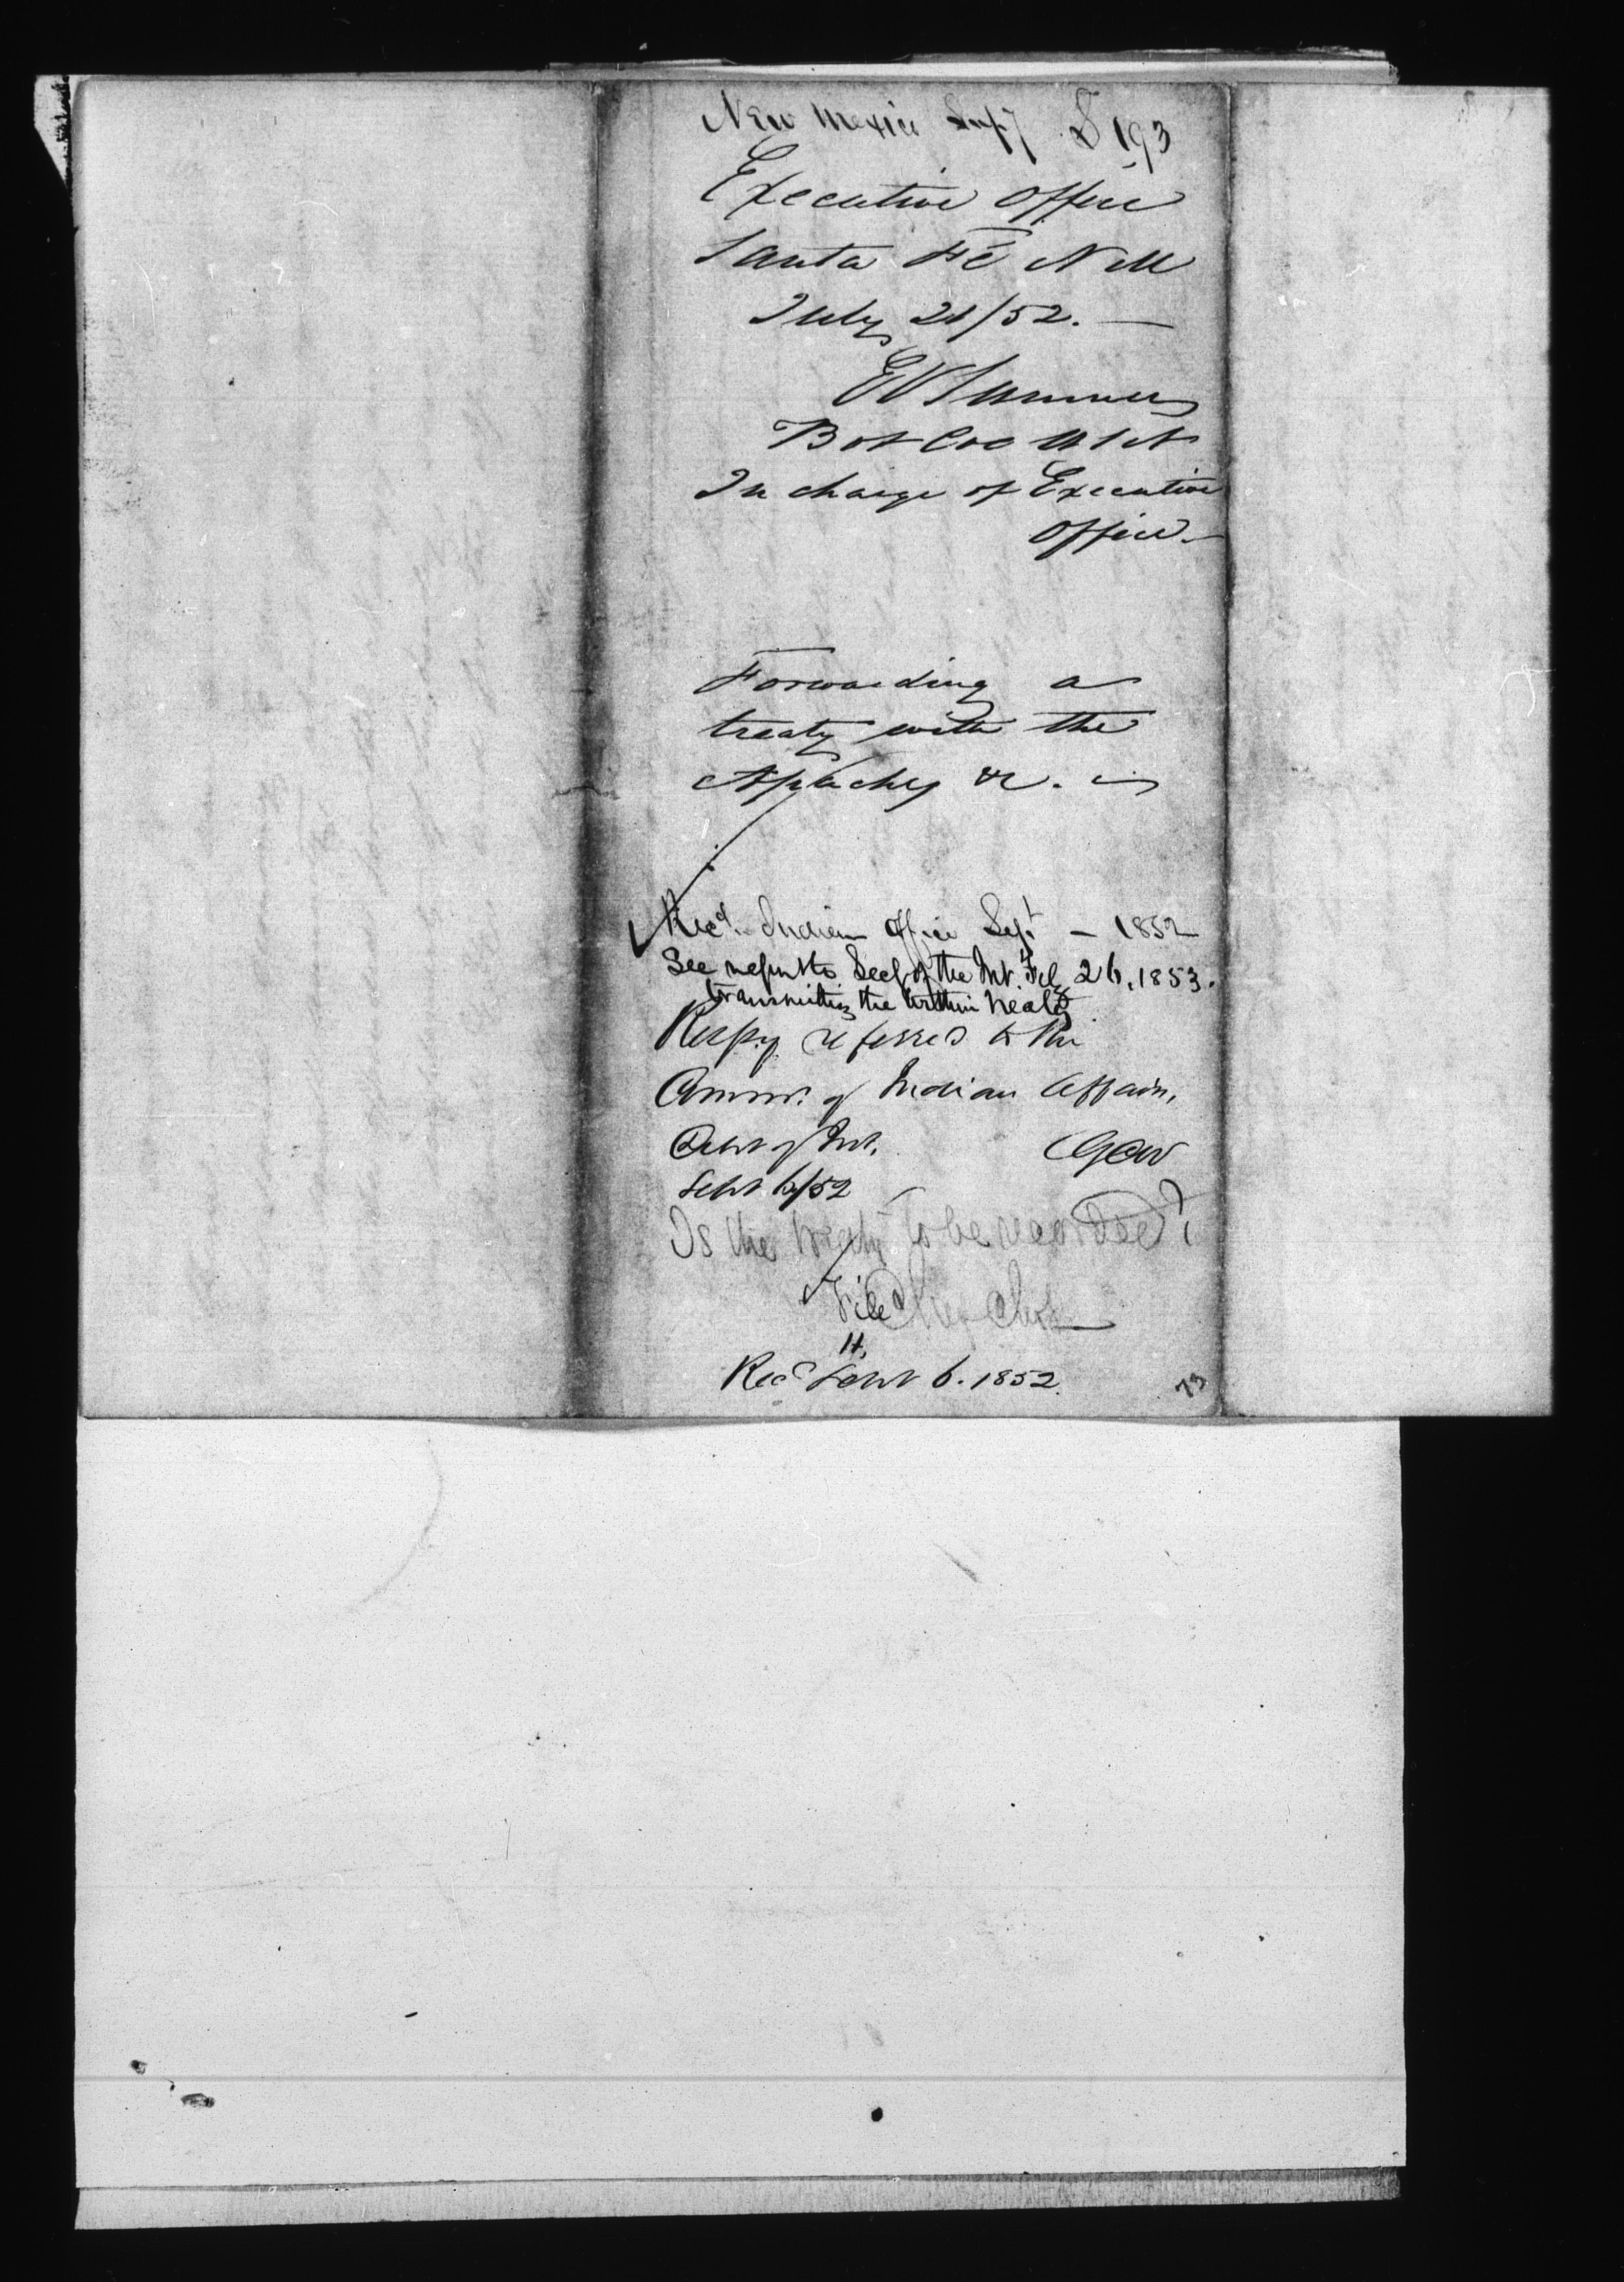 New Mexico Supy S 193
Executive Office
Santa Fé N M
July 21/52.—
E V Sumner
Bvt Col U S A
In charge of Executive
Office.—
Forwarding a
treaty with the
Apaches &c.
Recd. Indian Office Sept — 1852
See report to Secy of the Int. Feby 26, 1853.
transmitting the within treaty
Respy referred to the
Commr. of Indian Affairs,
Dept of Int. GCW
Sept 6/52
Is the treaty to be recorded?
File
H.
Recd Sept 6. 1852.
73